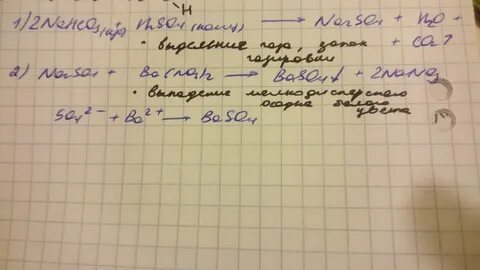 H
1) 2NaHCO3(изб) + H2SO4 (конц) → Na2SO4 + H2O +
• выделение газа, запах + CO2↑
газировки
2) Na2SO4 + Ba(NO3)2 → BaSO4↓ + 2NaNO3
• выпадение мелкодисперсного
осадка белого
цвета
SO4²⁻ + Ba²⁺ → BaSO4